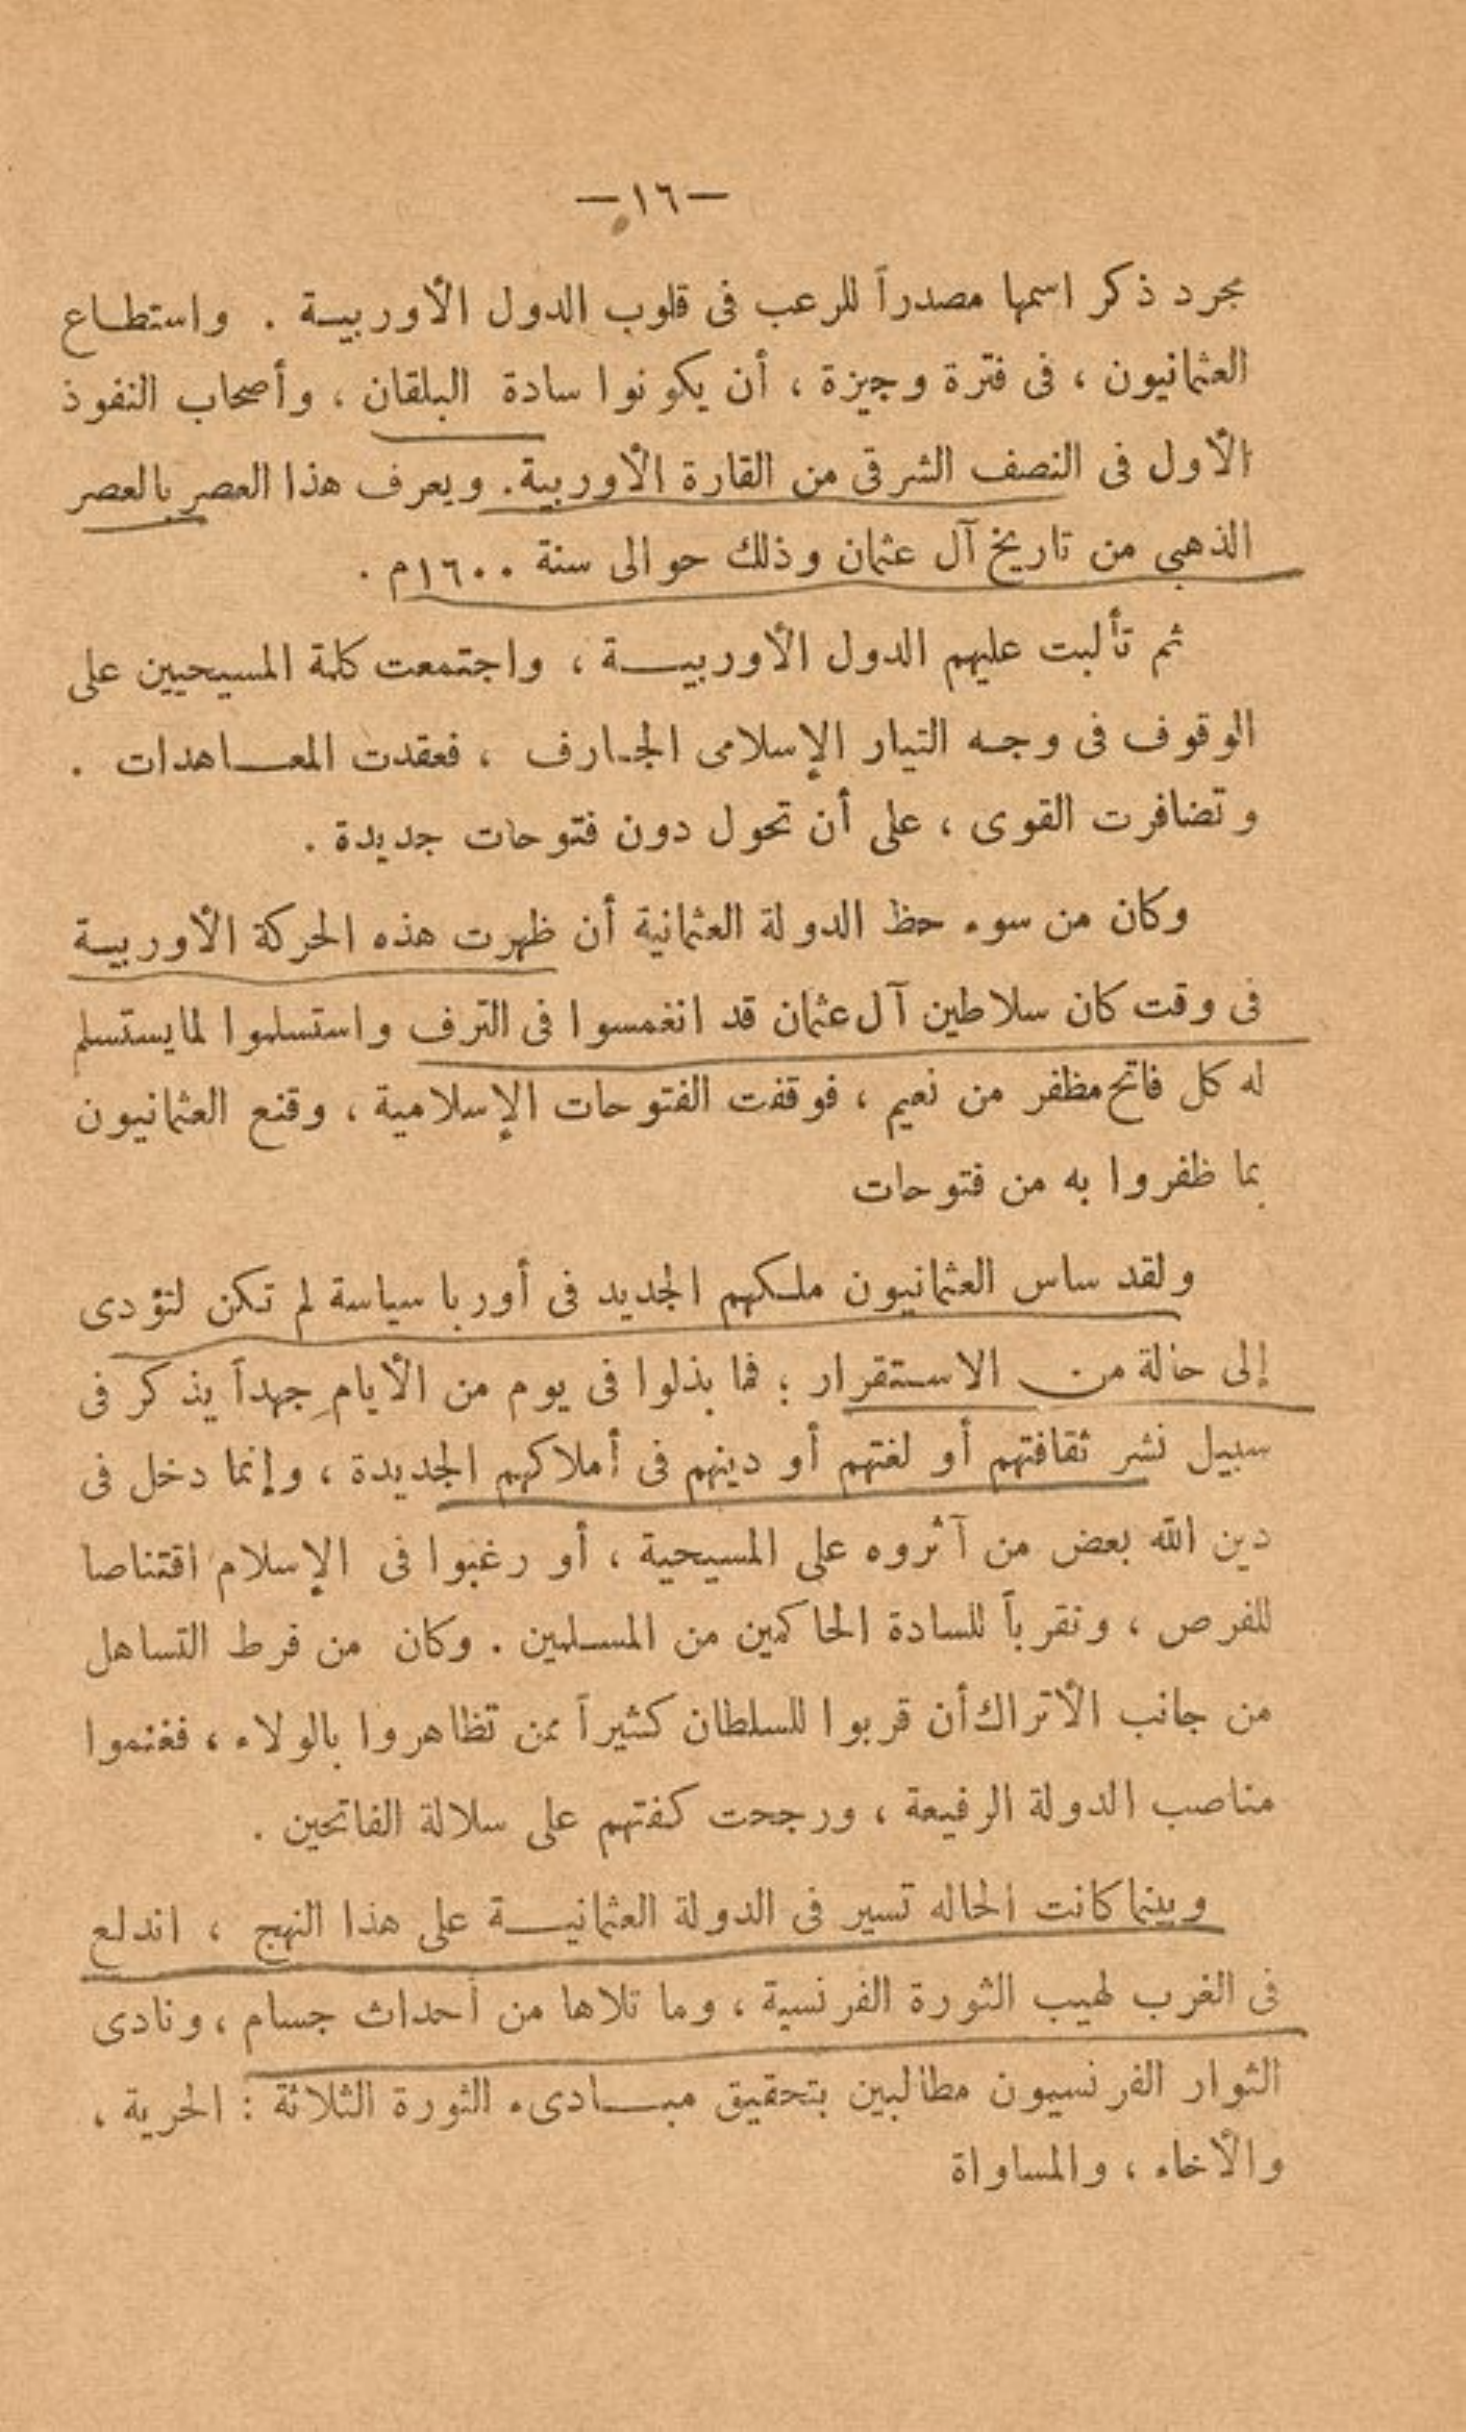 —١٦—
مجرد ذكر اسمها مصدراً للرعب فى قلوب الدول الأوربية . واستطاع
العثمانيون ، فى فترة وجيزة ، أن يكونوا سادة البلقان ، وأصحاب النفوذ
الأول فى النصف الشرقى من القارة الأوربية. ويعرف هذا العصر بالعصر
الذهبى من تاريخ آل عثمان وذلك حوالى سنة ١٦٠٠م .
ثم تألبت عليهم الدول الأوربية ، واجتمعت كلمة المسيحيين على
الوقوف فى وجه التيار الإسلامى الجارف ، فعقدت المعاهدات .
وتضافرت القوى ، على أن تحول دون فتوحات جديدة .
وكان من سوء حظ الدولة العثمانية أن ظهرت هذه الحركة الأوربية
فى وقت كان سلاطين آل عثمان قد انغمسوا فى الترف واستسلموا لما يستسلم
له كل فاتح مظفر من نعيم ، فوقفت الفتوحات الإسلامية ، وقنع العثمانيون
بما ظفروا به من فتوحات
ولقد ساس العثمانيون ملكهم الجديد فى أوربا سياسة لم تكن لتؤدى
إلى حالة من الاستقرار ؛ فما بذلوا فى يوم من الأيام جهداً يذكر فى
سبيل نشر ثقافتهم أو لغتهم أو دينهم فى أملاكهم الجديدة ، وإنما دخل فى
دين الله بعض من آثروه على المسيحية ، أو رغبوا فى الإسلام اقتناصا
للفرص ، وتقرباً للسادة الحاكمين من المسلمين . وكان من فرط التساهل
من جانب الأتراك أن قربوا للسلطان كثيراً ممن تظاهروا بالولاء ، فغنموا
مناصب الدولة الرفيعة ، ورجحت كفتهم على سلالة الفاتحين .
وبينما كانت الحاله تسير فى الدولة العثمانية على هذا النهج ، اندلع
فى الغرب لهيب الثورة الفرنسية ، وما تلاها من أحداث جسام ، ونادى
الثوار الفرنسيون مطالبين بتحقيق مبادىء الثورة الثلاثة : الحرية ،
والأخاء ، والمساواة